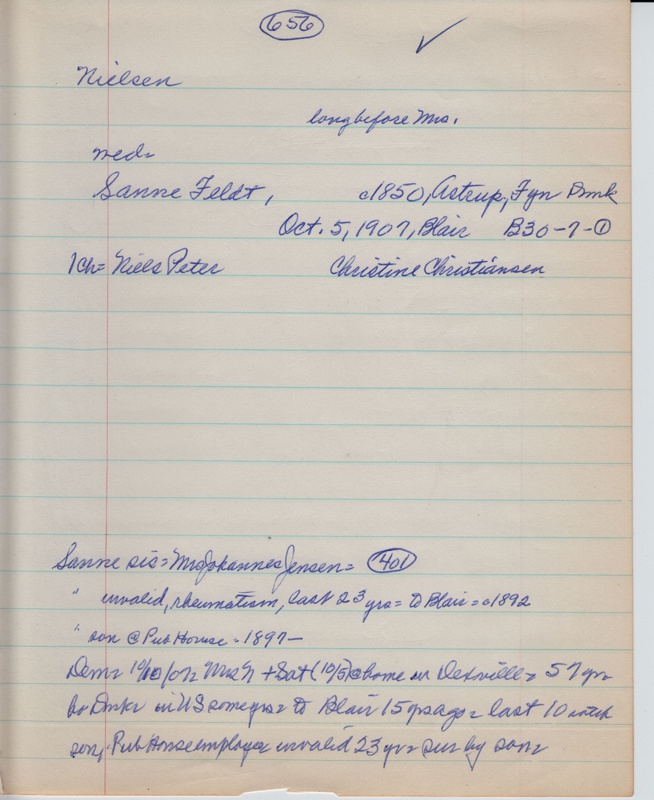 656 ✓
Nielsen
long before Mrs.
med=
Sanne Feldt, c1850, Astrup, Fyn Dmk
Oct. 5, 1907, Blair B30-7-①
1ch= Niels Peter Christine Christiansen
Sanne sis= Mrs Johannes Jensen= 401
" invalid, rheumatism, last 23 yrs= to Blair= c1892
" son @ Pub House - 1897-
Dem= 10/10/07= Mrs N + Sat (10/5) @ home in = 57 yrs
bo Dmk= in US some yrs= to Blair 15 yrs ago= last 10 with
son, Pub House employee invalid 23 yr= sur by son=